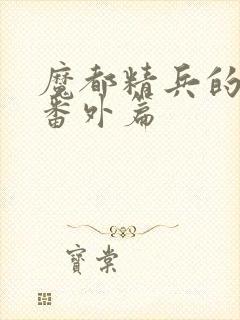 魔都精兵的
番外篇
寶棠